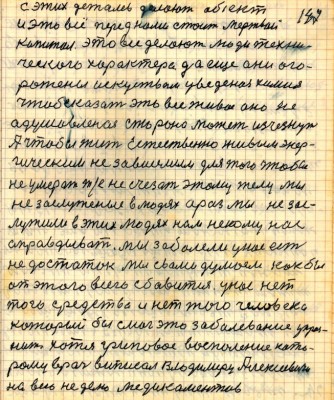 с этих деталь делают объект 157
и это всё перед нами стоит мертвой
капитал. это все делают люди техни
ческого характера да еще ани ого-
рожены искуством уведеная химия
чтоб сказат это все живое ано не
адушевленая сторона может изчезнут
А чтобы жит Естественно живым энер-
гическим не зависимым для того чтобы
не умерат не не счезат этому телу мы
не заслуженые в людях а раз мы не зас-
лужили в этих людях нам некому нас
оправдыват. мы заболели у нас ест
недостаток мы с вами думаем как бы
от этого всего сбавится, у нас нет
того средства и нет того человека
который бы смог это заболевание устра-
нит. хотя гриповое восполение кото-
рому врач виписал Владимиру Алексеевичу
на всю неделю медикаментов